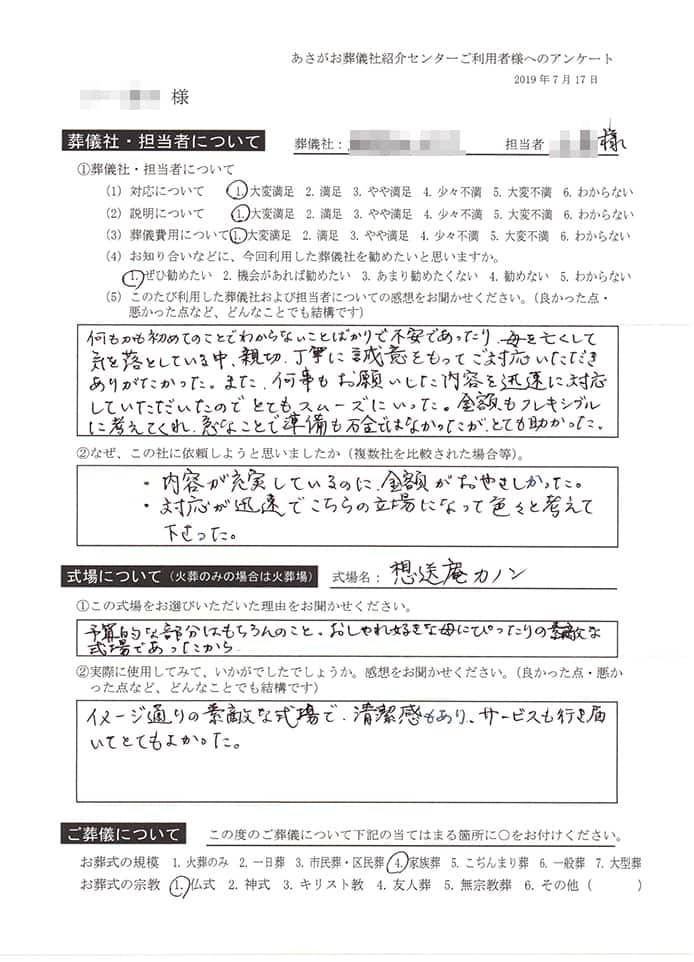 あさがお葬儀社紹介センターご利用者様へのアンケート
2019年7月17日
様
葬儀社・担当者について 葬儀社： 担当者 様
①葬儀社・担当者について
(1) 対応について 1.大変満足 2.満足 3.やや満足 4.少々不満 5.大変不満 6.わからない
(2) 説明について 1.大変満足 2.満足 3.やや満足 4.少々不満 5.大変不満 6.わからない
(3) 葬儀費用について 1.大変満足 2.満足 3.やや満足 4.少々不満 5.大変不満 6.わからない
(4) お知り合いなどに、今回利用した葬儀社を勧めたいと思いますか。
1.ぜひ勧めたい 2.機会があれば勧めたい 3.あまり勧めたくない 4.勧めない 5.わからない
(5) このたび利用した葬儀社および担当者についての感想をお聞かせください。（良かった点・
悪かった点など、どんなことでも結構です）
何もかも初めてのことでわからないことばかりで不安であったり、母を亡くして
気を落としている中、親切、丁寧に誠意をもってご対応いただき
ありがたかった。また、何事もお願いした内容を迅速に対応
していただいたのでとてもスムーズにいった。金額もフレキシブル
に考えてくれ、急なことで準備も万全ではなかったが、とても助かった。
②なぜ、この社に依頼しようと思いましたか（複数社を比較された場合等）。
・内容が充実しているのに、金額がおやさしかった。
・対応が迅速でこちらの立場になって色々と考えて
下さった。
式場について（火葬のみの場合は火葬場） 式場名：想送庵カノン
①この式場をお選びいただいた理由をお聞かせください。
予算的な部分はもちろんのこと、おしゃれ好きな母にぴったりの素敵な
式場であったから
②実際に使用してみて、いかがでしたでしょうか。感想をお聞かせください。（良かった点・悪か
った点など、どんなことでも結構です）
イメージ通りの素敵な式場で、清潔感もあり、サービスも行き届
いてとてもよかった。
ご葬儀について この度のご葬儀について下記の当てはまる箇所に○をお付けください。
お葬式の規模 1.火葬のみ 2.一日葬 3.市民葬・区民葬 4.家族葬 5.こぢんまり葬 6.一般葬 7.大型葬
お葬式の宗教 1.仏式 2.神式 3.キリスト教 4.友人葬 5.無宗教葬 6.その他（ ）